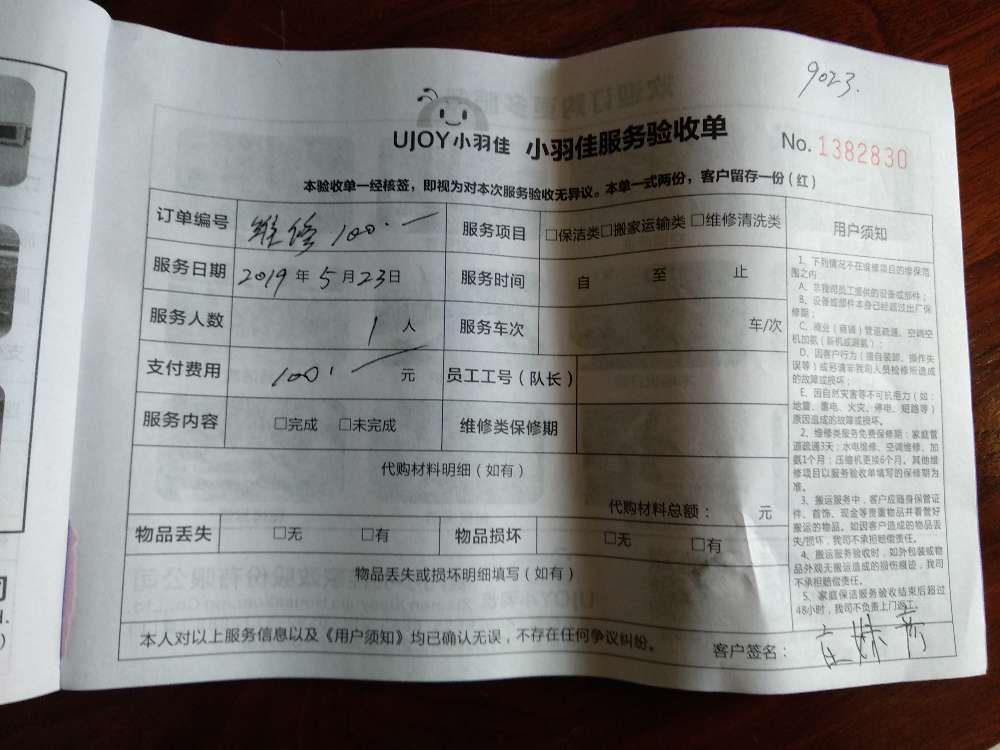 9023.
UJOY小羽佳 小羽佳服务验收单
No. 1382830
本验收单一经核签，即视为对本次服务验收无异议。本单一式两份，客户留存一份(红)
订单编号 维修100.一 服务项目 □保洁类□搬家运输类 □维修清洗类
服务日期 2019年5月23日 服务时间 自 至 止
服务人数 1人 服务车次 车/次
支付费用 100.一 元 员工工号(队长)
服务内容 □完成 □未完成 维修类保修期
代购材料明细(如有)
代购材料总额： 元
物品丢失 □无 □有 物品损坏 □无 □有
物品丢失或损坏明细填写(如有)
本人对以上服务信息以及《用户须知》均已确认无误，不存在任何争议纠纷。
客户签名：
用户须知
1、下列情况不在维修项目的维保范
围之内
A、非我司员工提供的设备或部件；
B、设备或部件本身已经超过出厂保
修期；
C、商业(商铺)管道疏通、空调空
机加氨(新机或漏氨)；
D、因客户行为(擅自装卸、操作失
误等)或另请非我司人员检修所造成
的故障或损坏；
E、因自然灾害等不可抗力(如：
地震、雷电、火灾、停电、短路等)
原因造成的故障或损坏。
2、维修类服务免费保修期：家庭管
道疏通3天；水电维修、空调维修、加
氨1个月；压缩机更换6个月。其他维
修项目以服务验收单填写的保修期为
准。
3、搬运服务中，客户应随身保管证
件、首饰、现金等贵重物品并看管好
搬运的物品。如因客户造成的物品丢
失/损坏，我司不承担赔偿责任。
4、搬运服务验收时，如外包装或物
品外观无搬运造成的损伤痕迹，我司
不承担赔偿责任。
5、家庭保洁服务验收结束后超过
48小时，我司不负责上门返工。